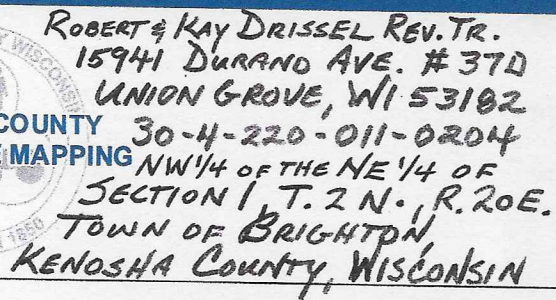 ROBERT & KAY DRISSEL REV. TR.
15941 DURAND AVE. #37D
UNION GROVE, WI 53182
COUNTY
30-4-220-011-0204
MAPPING
NW 1/4 OF THE NE 1/4 OF
SECTION 1, T. 2 N., R. 20E.
TOWN OF BRIGHTON,
KENOSHA COUNTY, WISCONSIN
WISCONSIN
1850